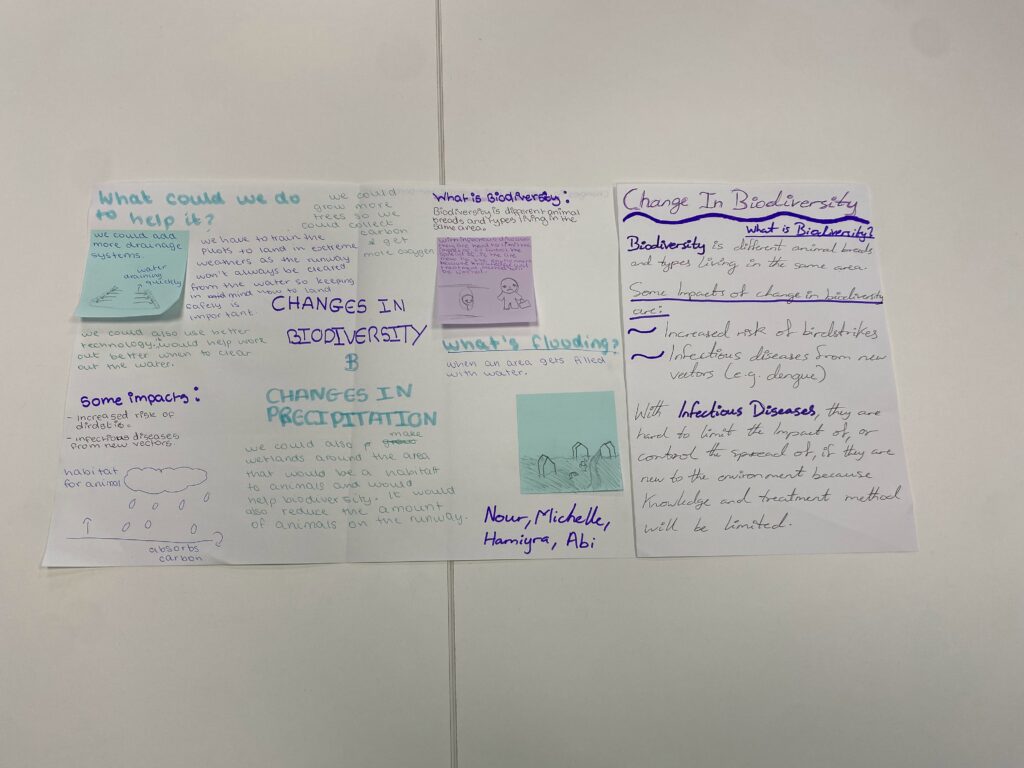 What could we do
to help it?
we could add
more drainage
systems.
water
draining
quickly
we have to train the
pilots to land in extreme
weathers as the runway
won't always be cleared
from the water so keeping
in mind how to land
safely is
important.
we could
grow more
trees so we
could collect
carbon
& get
more oxygen
we could also use better
technology, would help work
out better when to clear
out the water.
CHANGES IN
BIODIVERSITY
&
CHANGES IN
PRECIPITATION
Some impacts:
- increased risk of
- infectious diseases
from new vectors
habitat
for animal
absorbs
carbon
we could also make
wetlands around the area
that would be a habitat
to animals and would
help biodiversity. It would
also reduce the amount
of animals on the runway.
What is Biodiversity:
Biodiversity is different animal
breads and types living in the
same area.
with infectious diseases
they are hard to limit the
What's flooding?
when an area gets filled
with water.
Nour, Michelle,
Hamiyra, Abi
Change In Biodiversity
What is Biodiversity?
Biodiversity is different animal breads
and types living in the same area.
Some Impacts of change in biodiversity
are:
~ Increased risk of birdstrikes
~ Infectious diseases from new
vectors (e.g. dengue)
With Infectious Diseases, they are
hard to limit the impact of, or
control the spread of, if they are
new to the environment because
Knowledge and treatment method
will be limited.